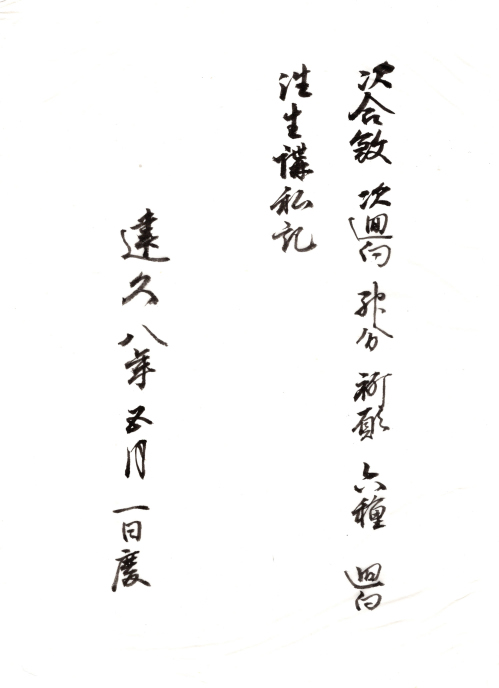 次合殺 次廻向 神分 祈願 六種 廻向
往生講私記
建久八年五月一日度